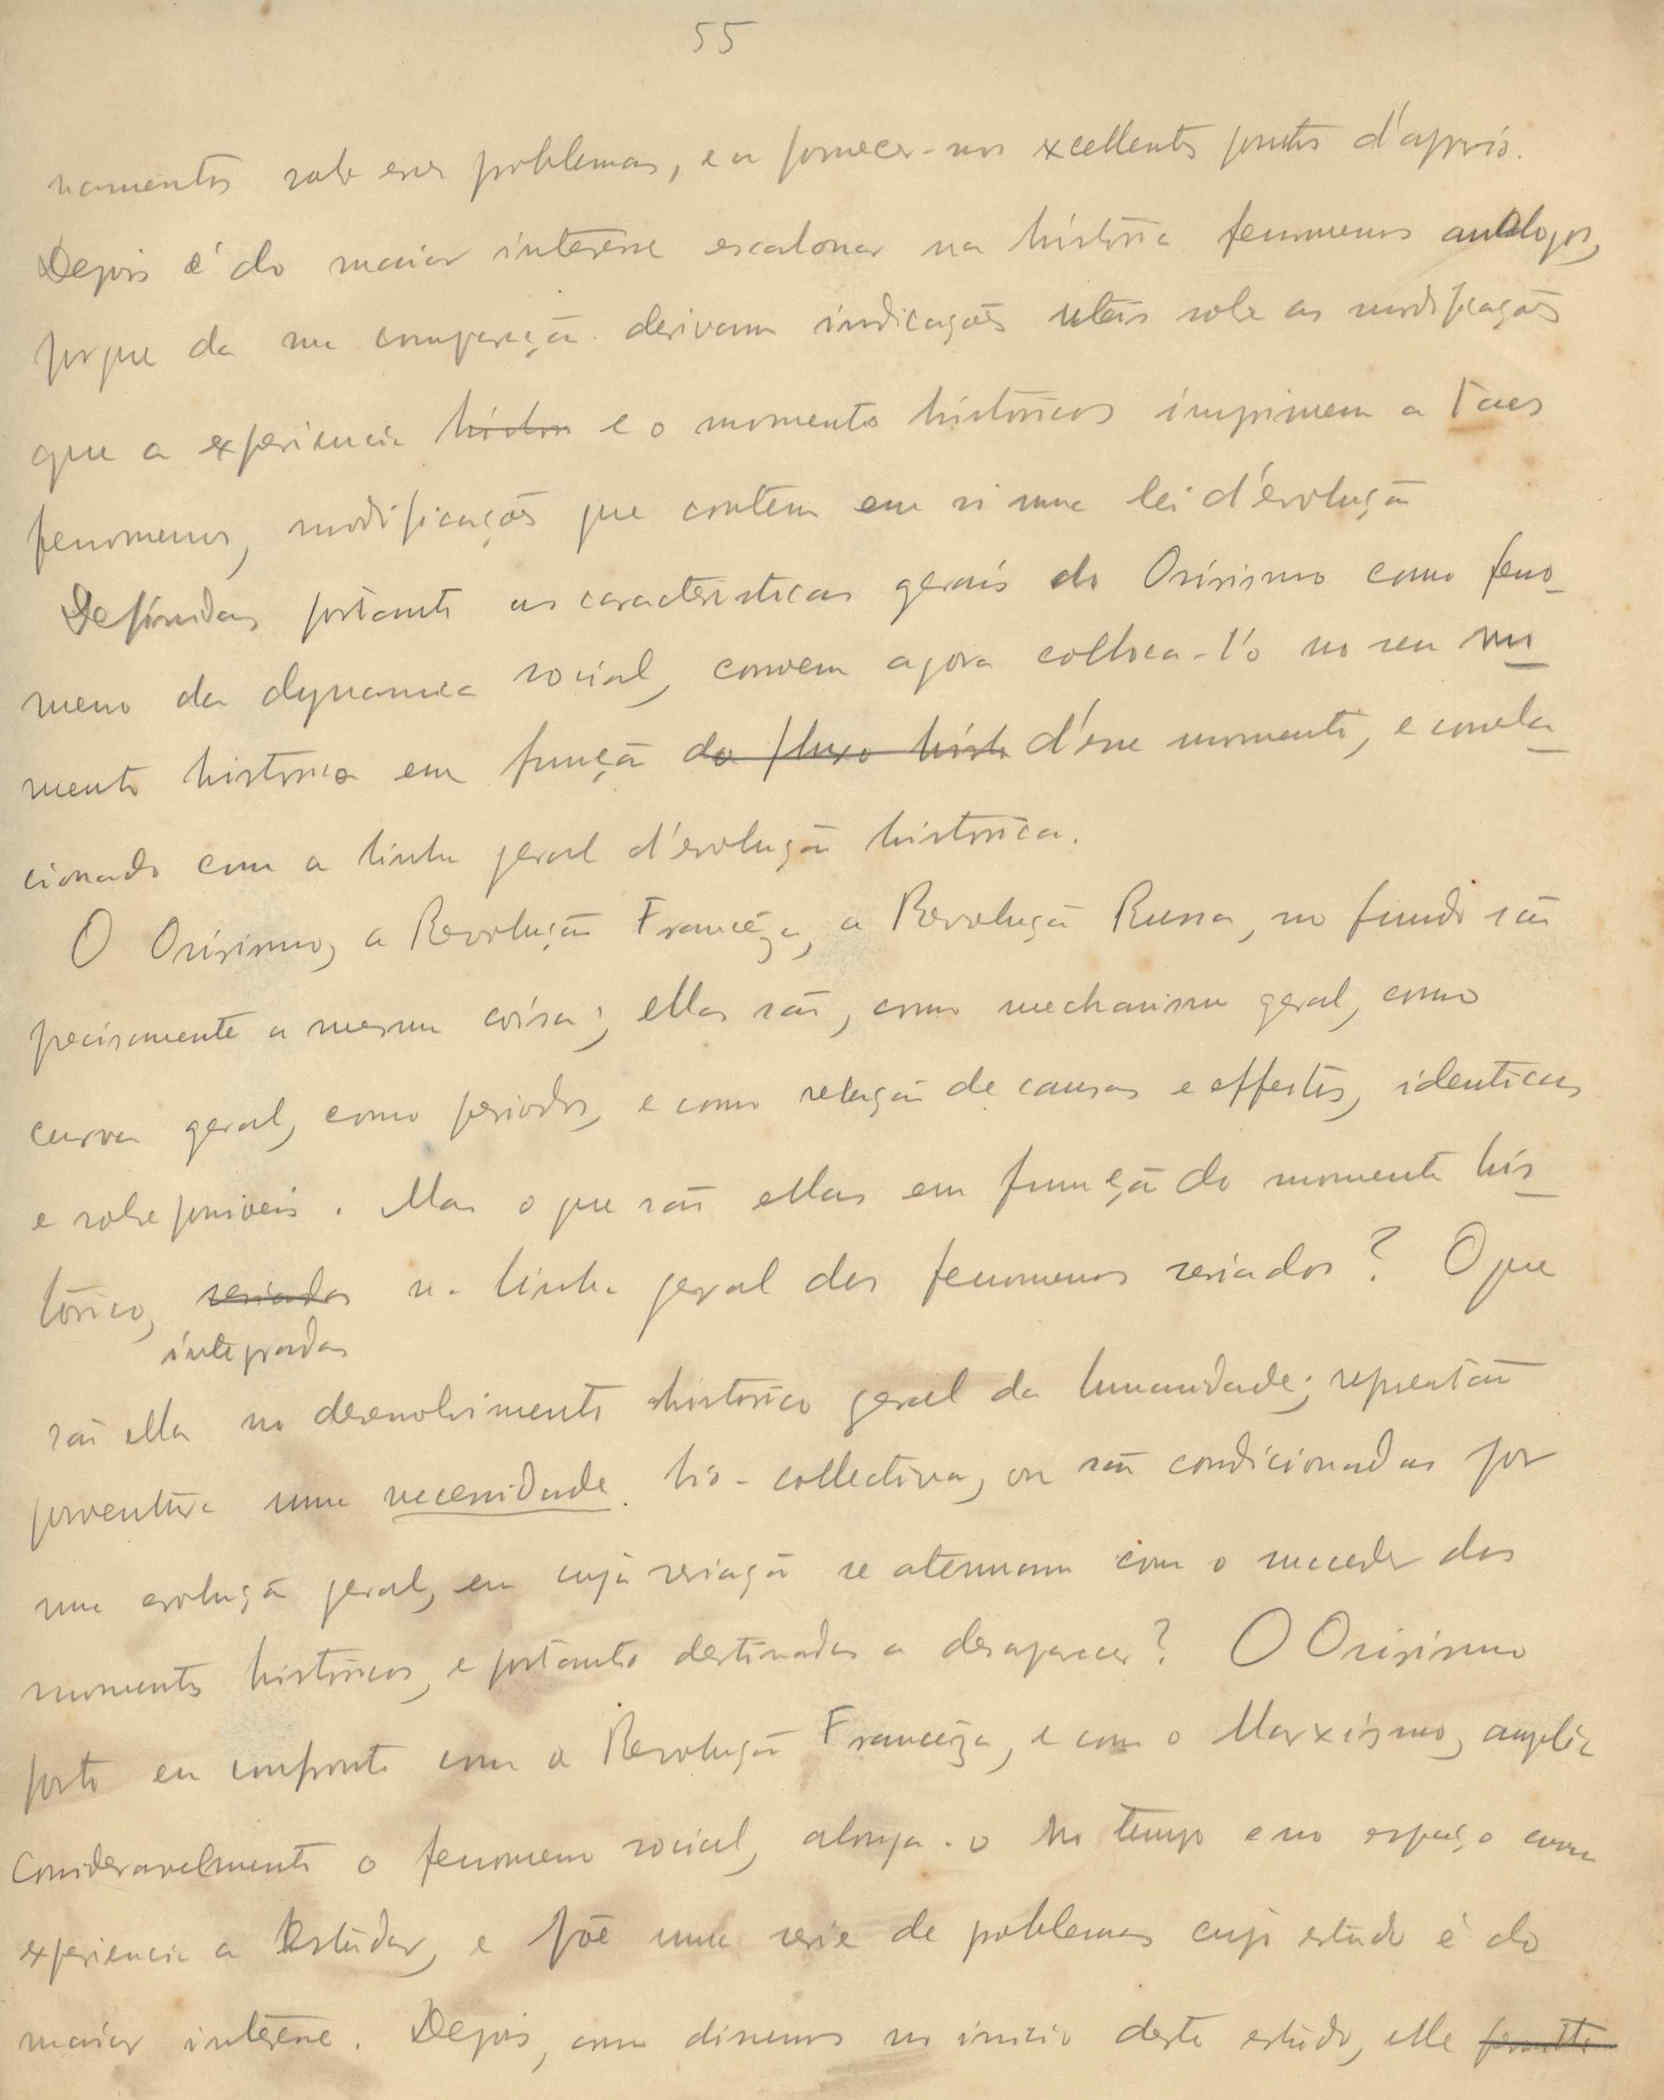 55
namentos sobre esses problemas, e a fornecer-nos excellentes pontos d'appoio.
Depois é do maior interesse escalonar na história fenomenos analogos,
porque da sua comparação derivam indicações uteis sobre as modificações
que a experiencia histor e o momento históricos imprimem a taes
fenomenos, modificações que contem em si uma lei d'évolução
Definidas portanto as caracteristicas gerais do Osirismo como feno-
meno da dynamica social, convem agora colloca-l'o no seu mo
mento historico em função do fluxo histo d'ésse momento, e correla
cionado com a linha geral d'évolução histórica.
O Osirismo, a Revolução Francêza, a Revolução Russa, no fundo são
precisamente a mesma coisa; ellas são, como mechanismo geral, como
curva geral, como periodos, e como relação de causas e effeitos, identicas
e sobreponiveis. Mas o que são ellas em função do momento his
tórico, seriadas na linha geral dos fenomenos seriados? O que
integradas
são ellas no desenvolvimento historico geral da humanidade; representão
porventura uma necessidade bio-collectiva, ou são condicionadas por
uma evolução geral, em cuja seriação se atenuam com o suceder dos
momentos históricos, e portanto destinadas a desaparecer? O Osirismo
posto em confronto com a Revolução Francêza, e com o Marxismo, amplia
consideravelmente o fenomeno social, alonga-o no tempo e no espaço como
experiencia a Estudar, e põe uma serie de problemas cujo estudo é do
maior interesse. Depois, como dissemos no inicio deste estudo, elle permitte